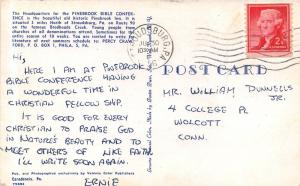 The Headquarters for the PINEBROOK BIBLE CONFER-
ENCE is the beautiful old historic Pinebrook Inn. It is
situated 5 miles North of Stroudsburg, Pa on Route 90
on the famous Brodheads Creek. Young people from
churches of all denominations attend. Conducted for the
summer course of 10 weeks. You are invited to write for
literature of next summers schedule to: PERCY CRAW-
FORD, P. O. BOX 1, PHILA. 5, PA.
Hi,
Here I am at Pinebrook
Bible Conference having
a wonderful time in
Christian fellowship.
It is good for every
Christian to praise God
in nature's beauty and to
meet others of like faith.
I'll write soon again.
Ernie
Pub. and Photographed exclusively by Valente Color Publishers
Canadensis, Pa.
STROUDSBURG, PA.
JUN 30
POST CARD
Mr. William Dunnells
Jr.
4 College Pl
Wolcott
Conn.